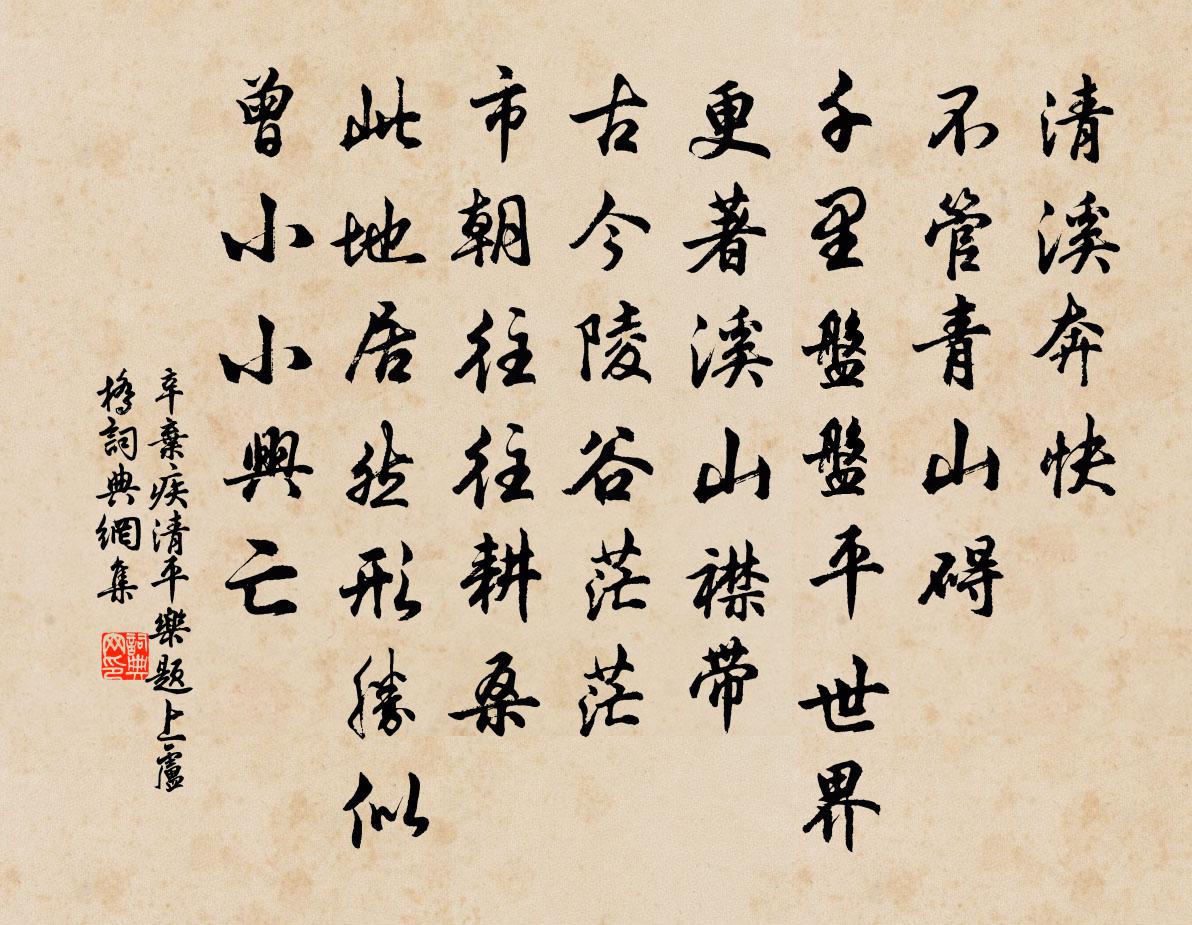 清溪奔快
不管青山碍
千里盤盤平世界
更著溪山襟带
古今陵谷茫茫
市朝往往耕桑
此地居然形勝似
曾小小興亡
辛棄疾清平樂題上盧
橋詞典網集
詞典网印